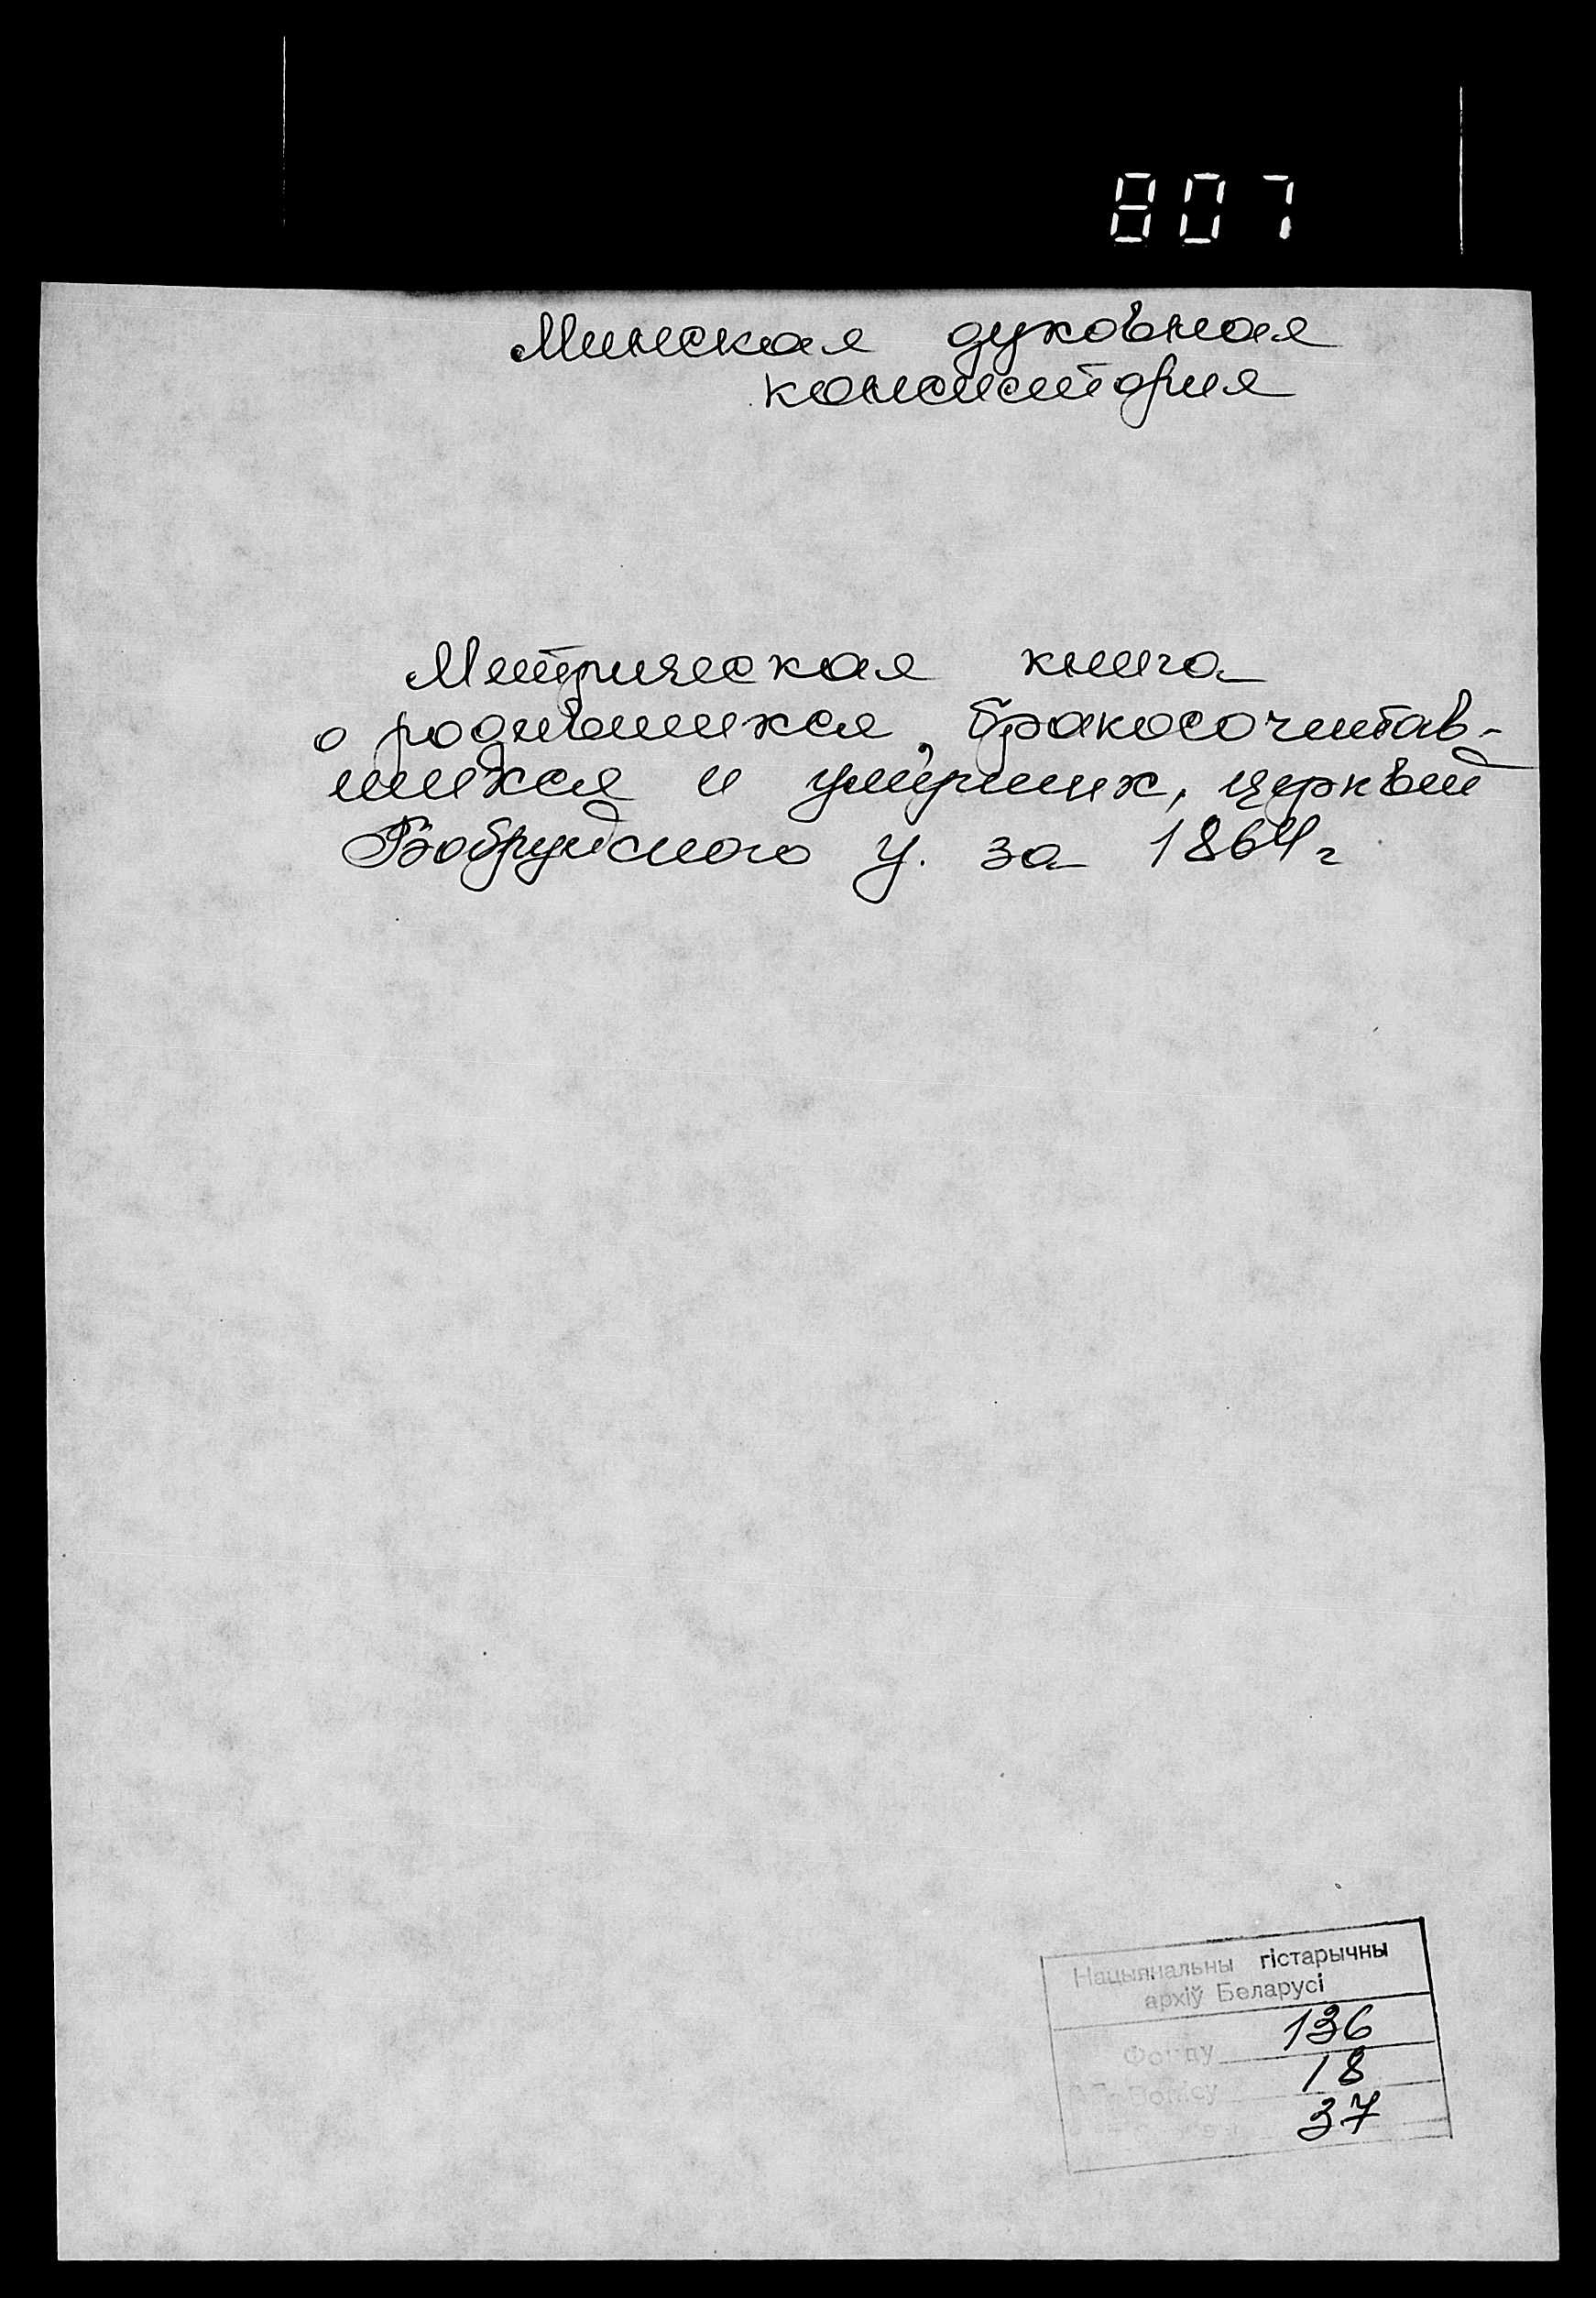 807
Минская духовная
консистория
Метрическая книга
о родившихся, бракосочетав-
шихся и умерших, церквей
Бобруйского у. за 1864 г
Нацыянальны гістарычны
архіў Беларусі
Фонду 136
Вопісу 18
37